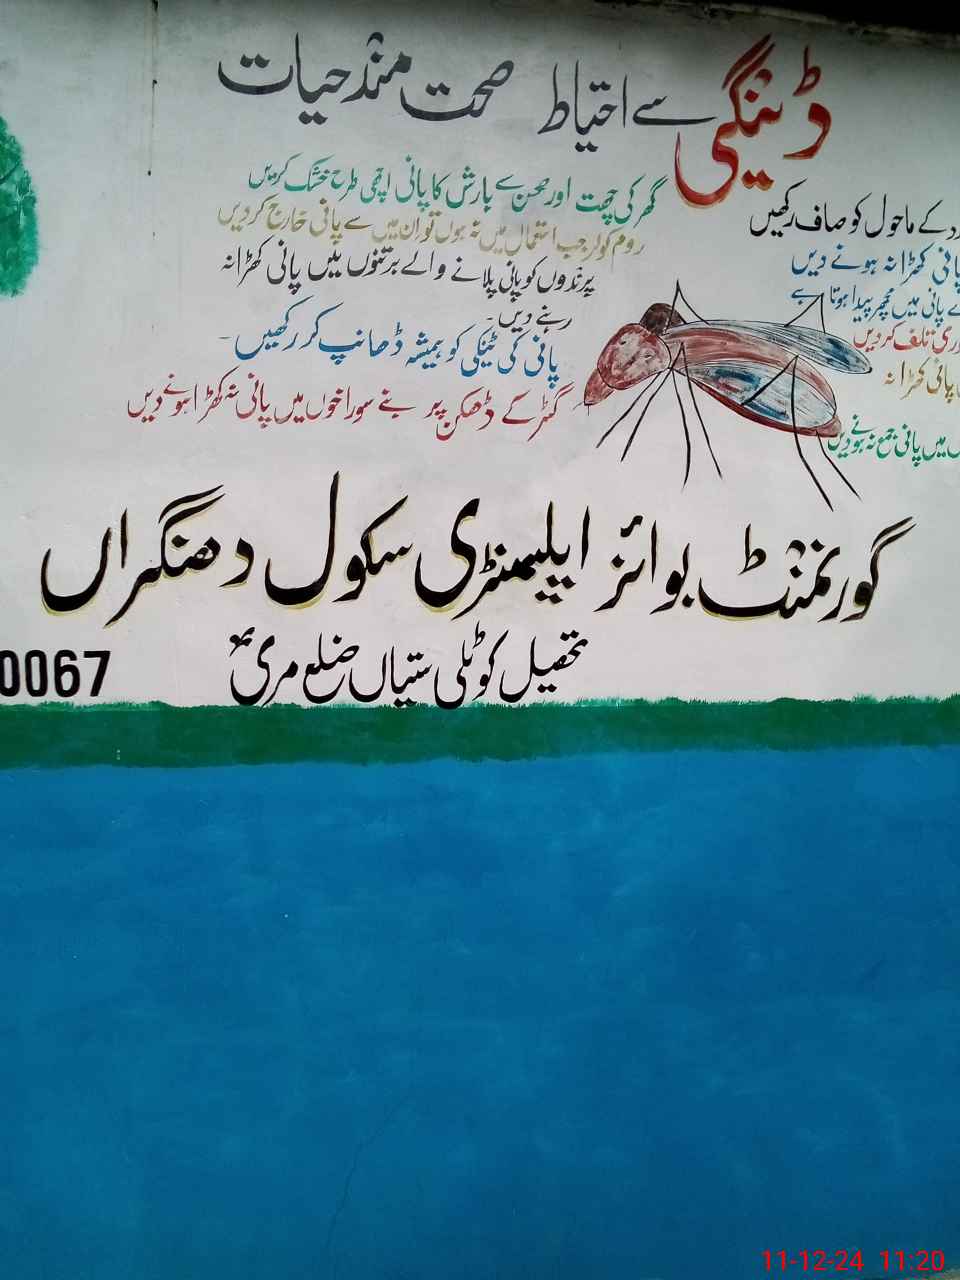 ڈینگی سے احتیاط صحت مند حیات
کے ماحول کو صاف رکھیں
پانی کھڑا نہ ہونے دیں
پانی میں مچھر پیدا ہوتا ہے
تلف کر دیں
پانی کھڑا نہ
میں پانی جمع نہ ہونے دیں
گھر کی چھت اور صحن سے بارش کا پانی اچھی طرح خشک کریں
روم کولر جب استعمال میں نہ ہوں تو ان میں سے پانی خارج کر دیں
پرندوں کو پانی پلانے والے برتنوں میں پانی کھڑا نہ
رہنے دیں۔
پانی کی ٹینکی کو ہمیشہ ڈھانپ کر رکھیں۔
گٹر کے ڈھکن پر بنے سوراخوں میں پانی نہ کھڑا ہونے دیں
گورنمنٹ بوائز ایلیمنٹری سکول دھنگراں
تحصیل کوٹلی ستیاں ضلع مری
0067
11-12-24 11:20